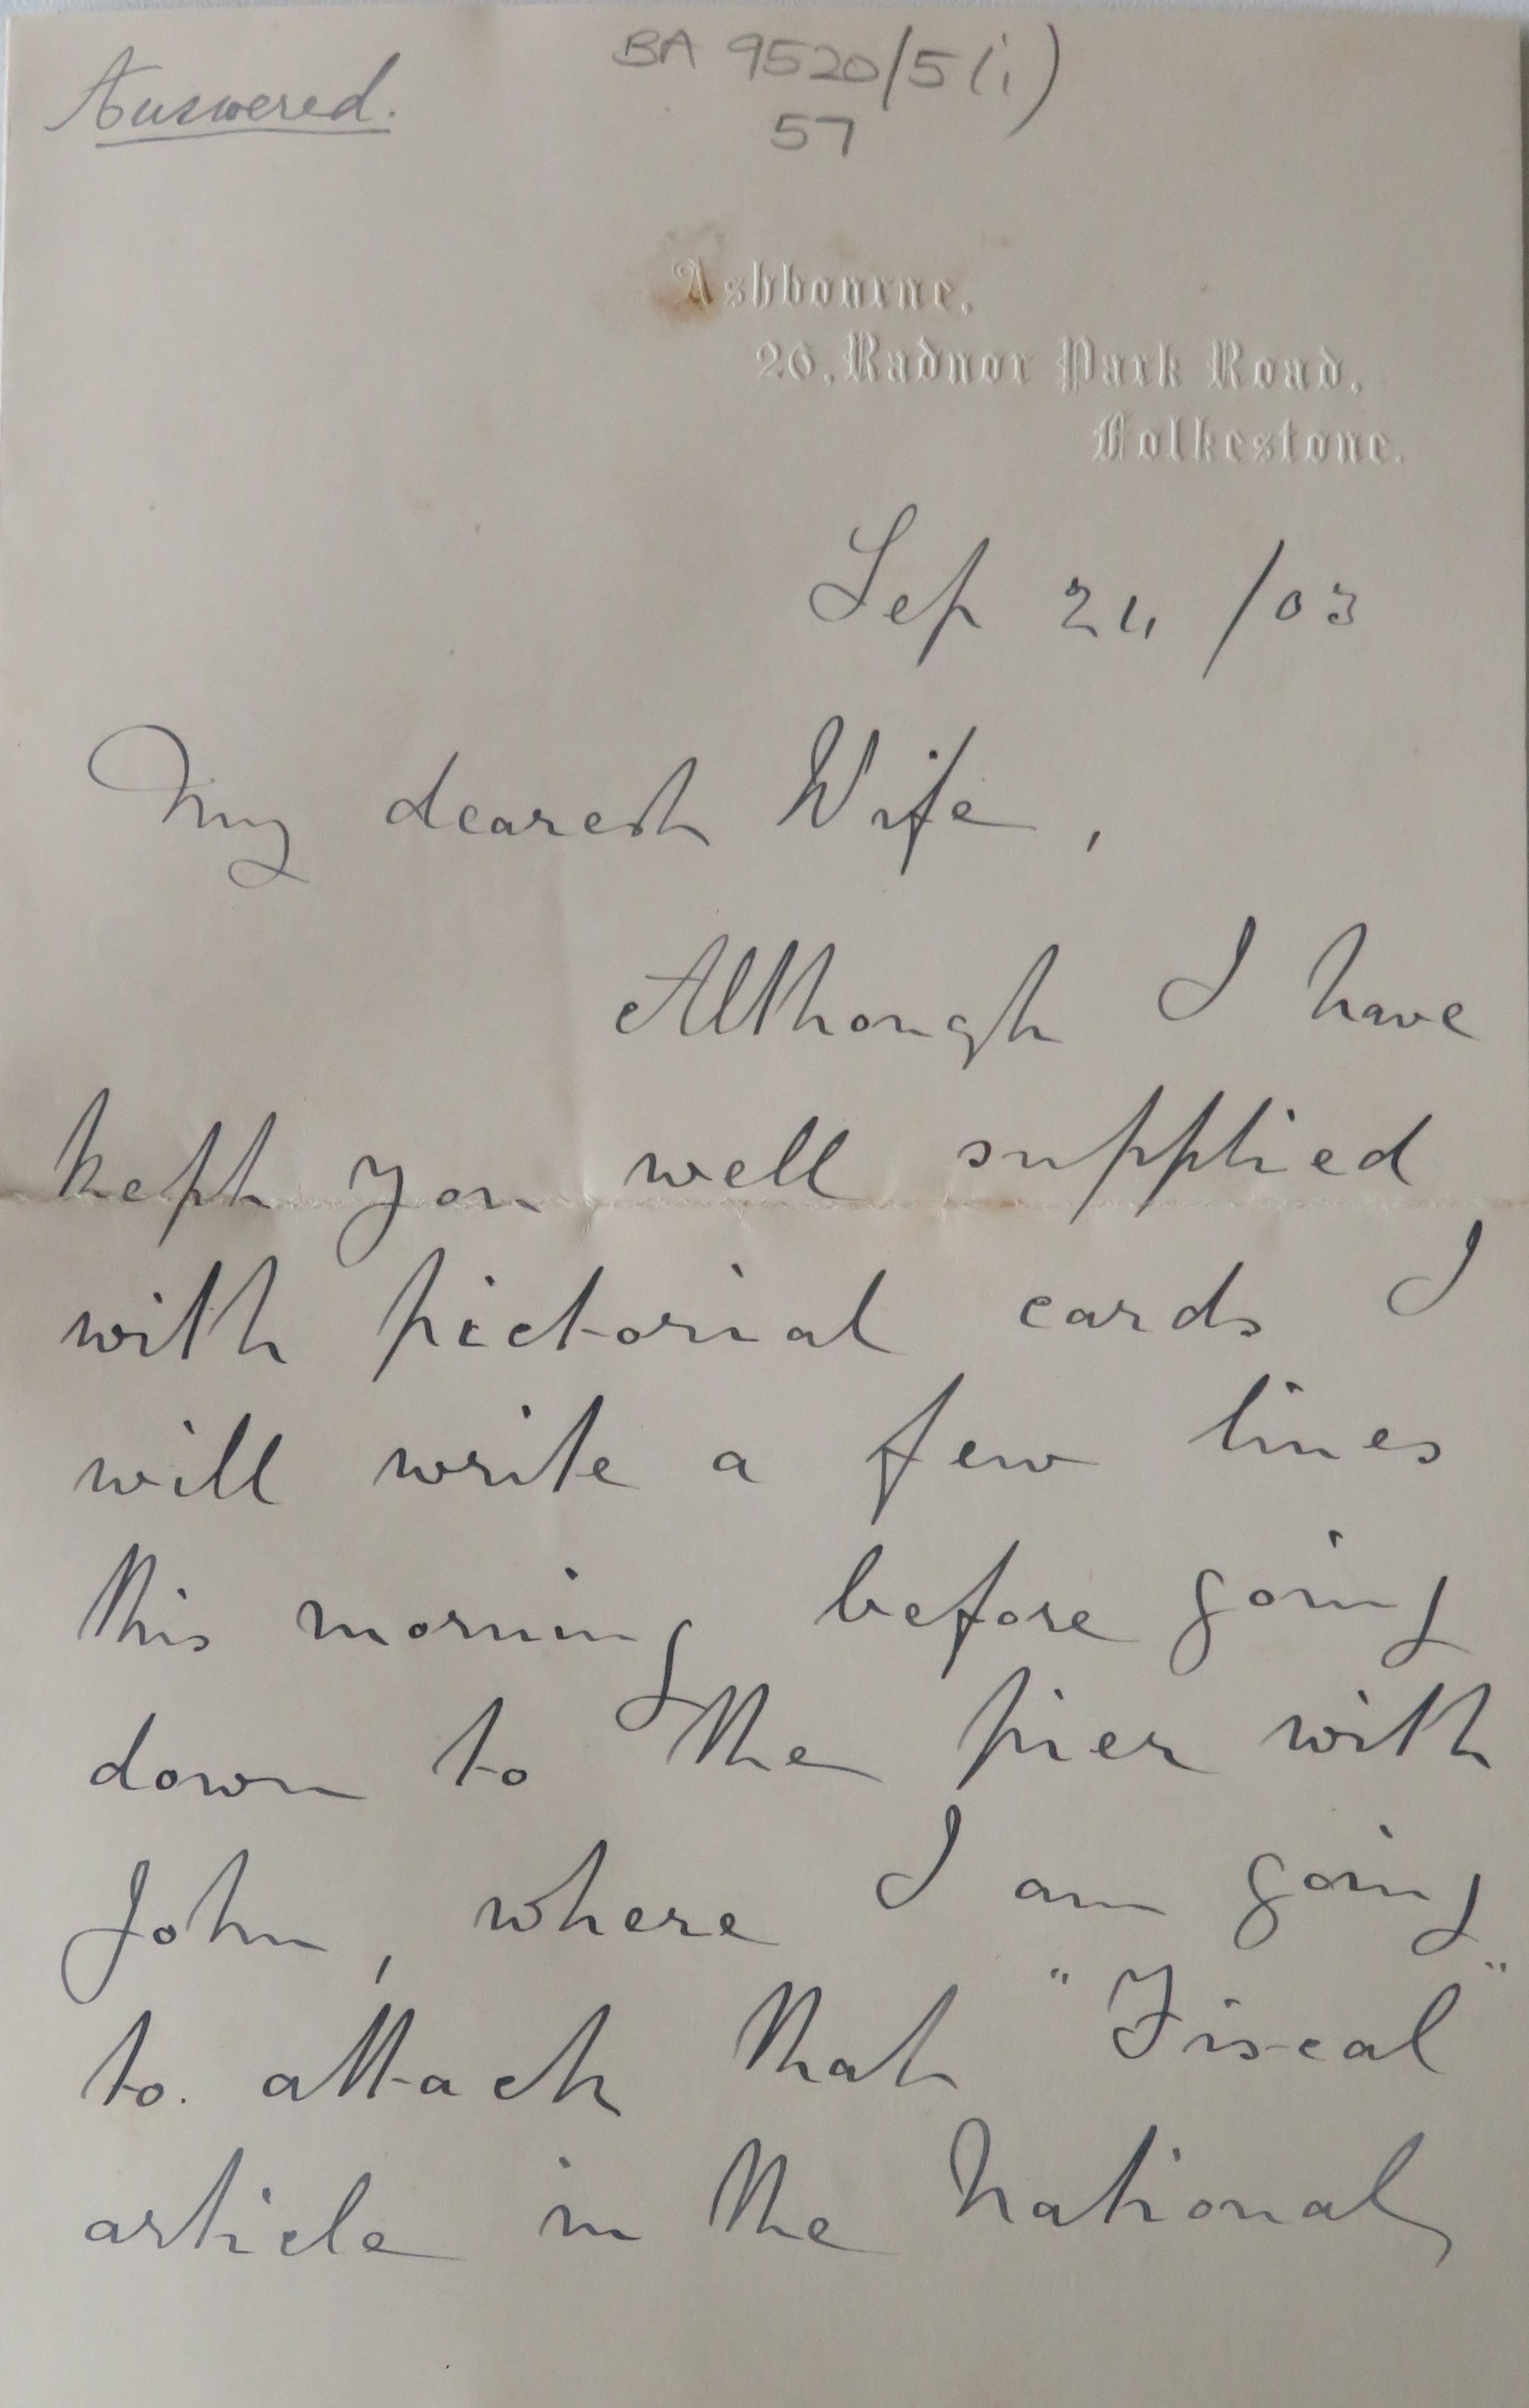 Answered.
BA 9520/5(i)
57
Ashbourne,
26, Radnor Park Road,
Folkestone.
Sep 24 /03
My dearest Wife,
Although I have
kept you well supplied
with pictorial cards I
will write a few lines
this morning before going
down to the pier with
John, where I am going
to. attack that "Fiscal"
article in the National,